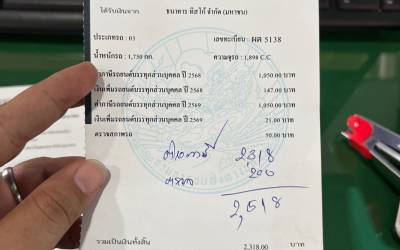 ได้รับเงินจาก ธนาคาร ทิสโก้ จำกัด (มหาชน)
ประเภทรถ : 03 เลขทะเบียน : ผต 5138
น้ำหนักรถ : 1,750 กก. ความจุรถ : 1,898 C.C
ค่าภาษีรถยนต์บรรทุกส่วนบุคคล ปี 2568 1,050.00 บาท
เงินเพิ่มรถยนต์บรรทุกส่วนบุคคล ปี 2568 147.00 บาท
ค่าภาษีรถยนต์บรรทุกส่วนบุคคล ปี 2569 1,050.00 บาท
เงินเพิ่มรถยนต์บรรทุกส่วนบุคคล ปี 2569 21.00 บาท
ตรวจสภาพรถ 50.00 บาท
2,318
200
2,518
รวมเป็นเงินทั้งสิ้น 2,318.00 บาท